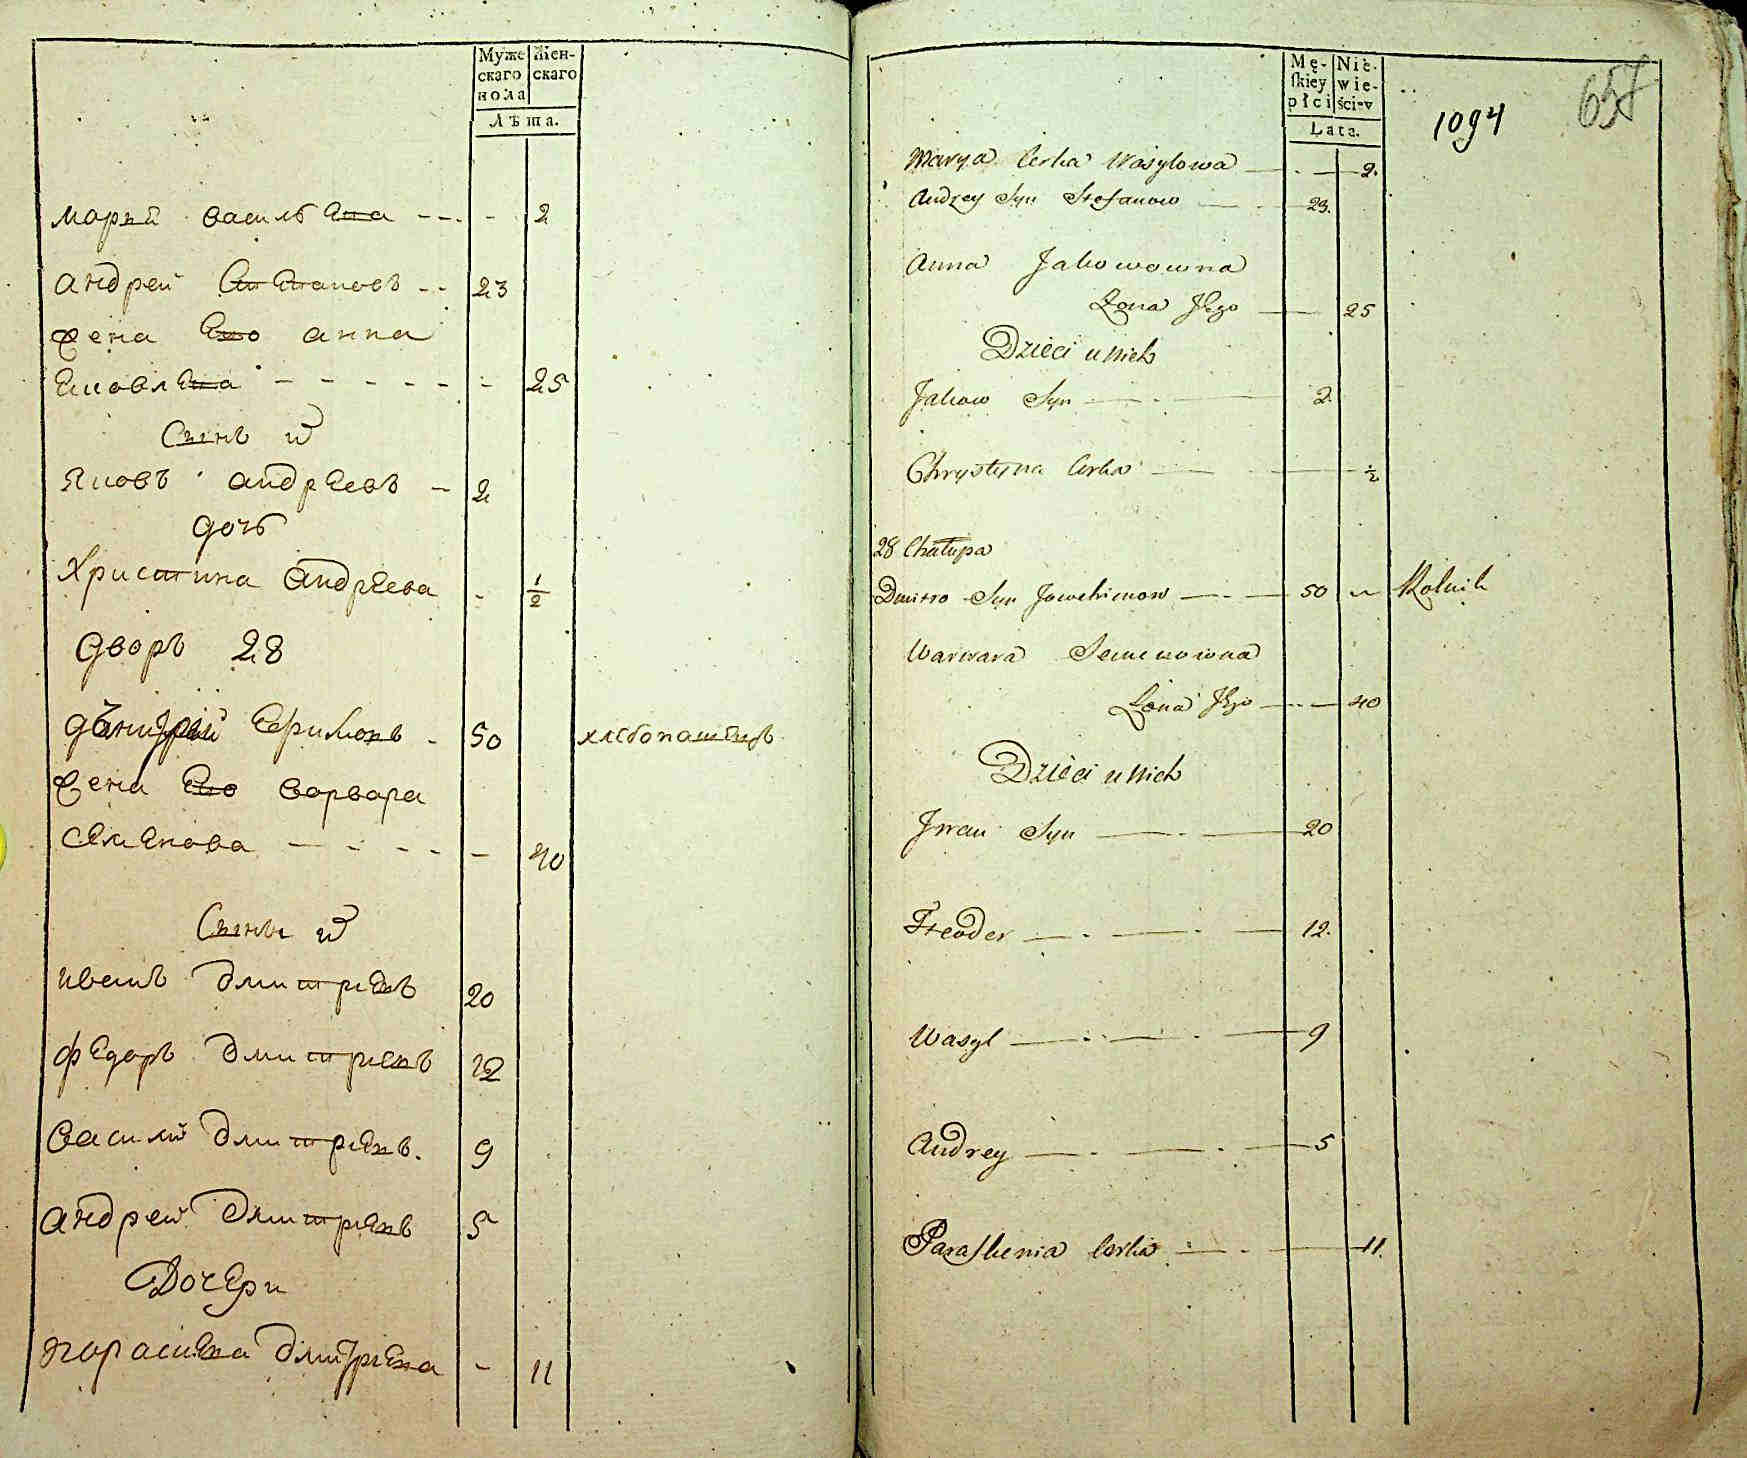 Муже Жен-
скаго скаго
пола
Лѣта.
Марья Васильева - - - - 2
Андрей Степановъ - - 23
Жена Ево Анна
Яковлева - - - - - - 25
Сынъ их
Яковъ Андреевъ - 2
Дочь
Христина Андреева - 1/2
Дворъ 28
Дмитрей Ефимовъ - 50 хлебопашецъ
Жена Ево Варвара
Семенова - - - - - 40
Сыны их
Иванъ Дмитриевъ 20
Федоръ Дмитриевъ 12
Василий Дмитриевъ. 9
Андрей Дмитриевъ 5
Дочери
Парасковea Дмитриева - 11
Mę- Nie-
skiey wie-
płci ściey
Lata.
1094
657
Marya Corka Wasylowa — - — 2.
Andrey Syn Stefanow — — 23.
Anna Jakowowna
Zona Jego — 25
Dzieci u Nich
Jakow Syn — - — 2.
Chrystyna Corka — — 1/2
28 Chałupa
Dmitro Syn Jowchimow — - — 50 Rolnik
Warwara Semenowna
Zona Jego — - — 40
Dzieci u Nich
Jwan Syn — - — 20
Fteoder — - — - — 12.
Wasyl — - - — - — 9
Andrey — - — - — 5
Paraskewia Corka — - — 11.